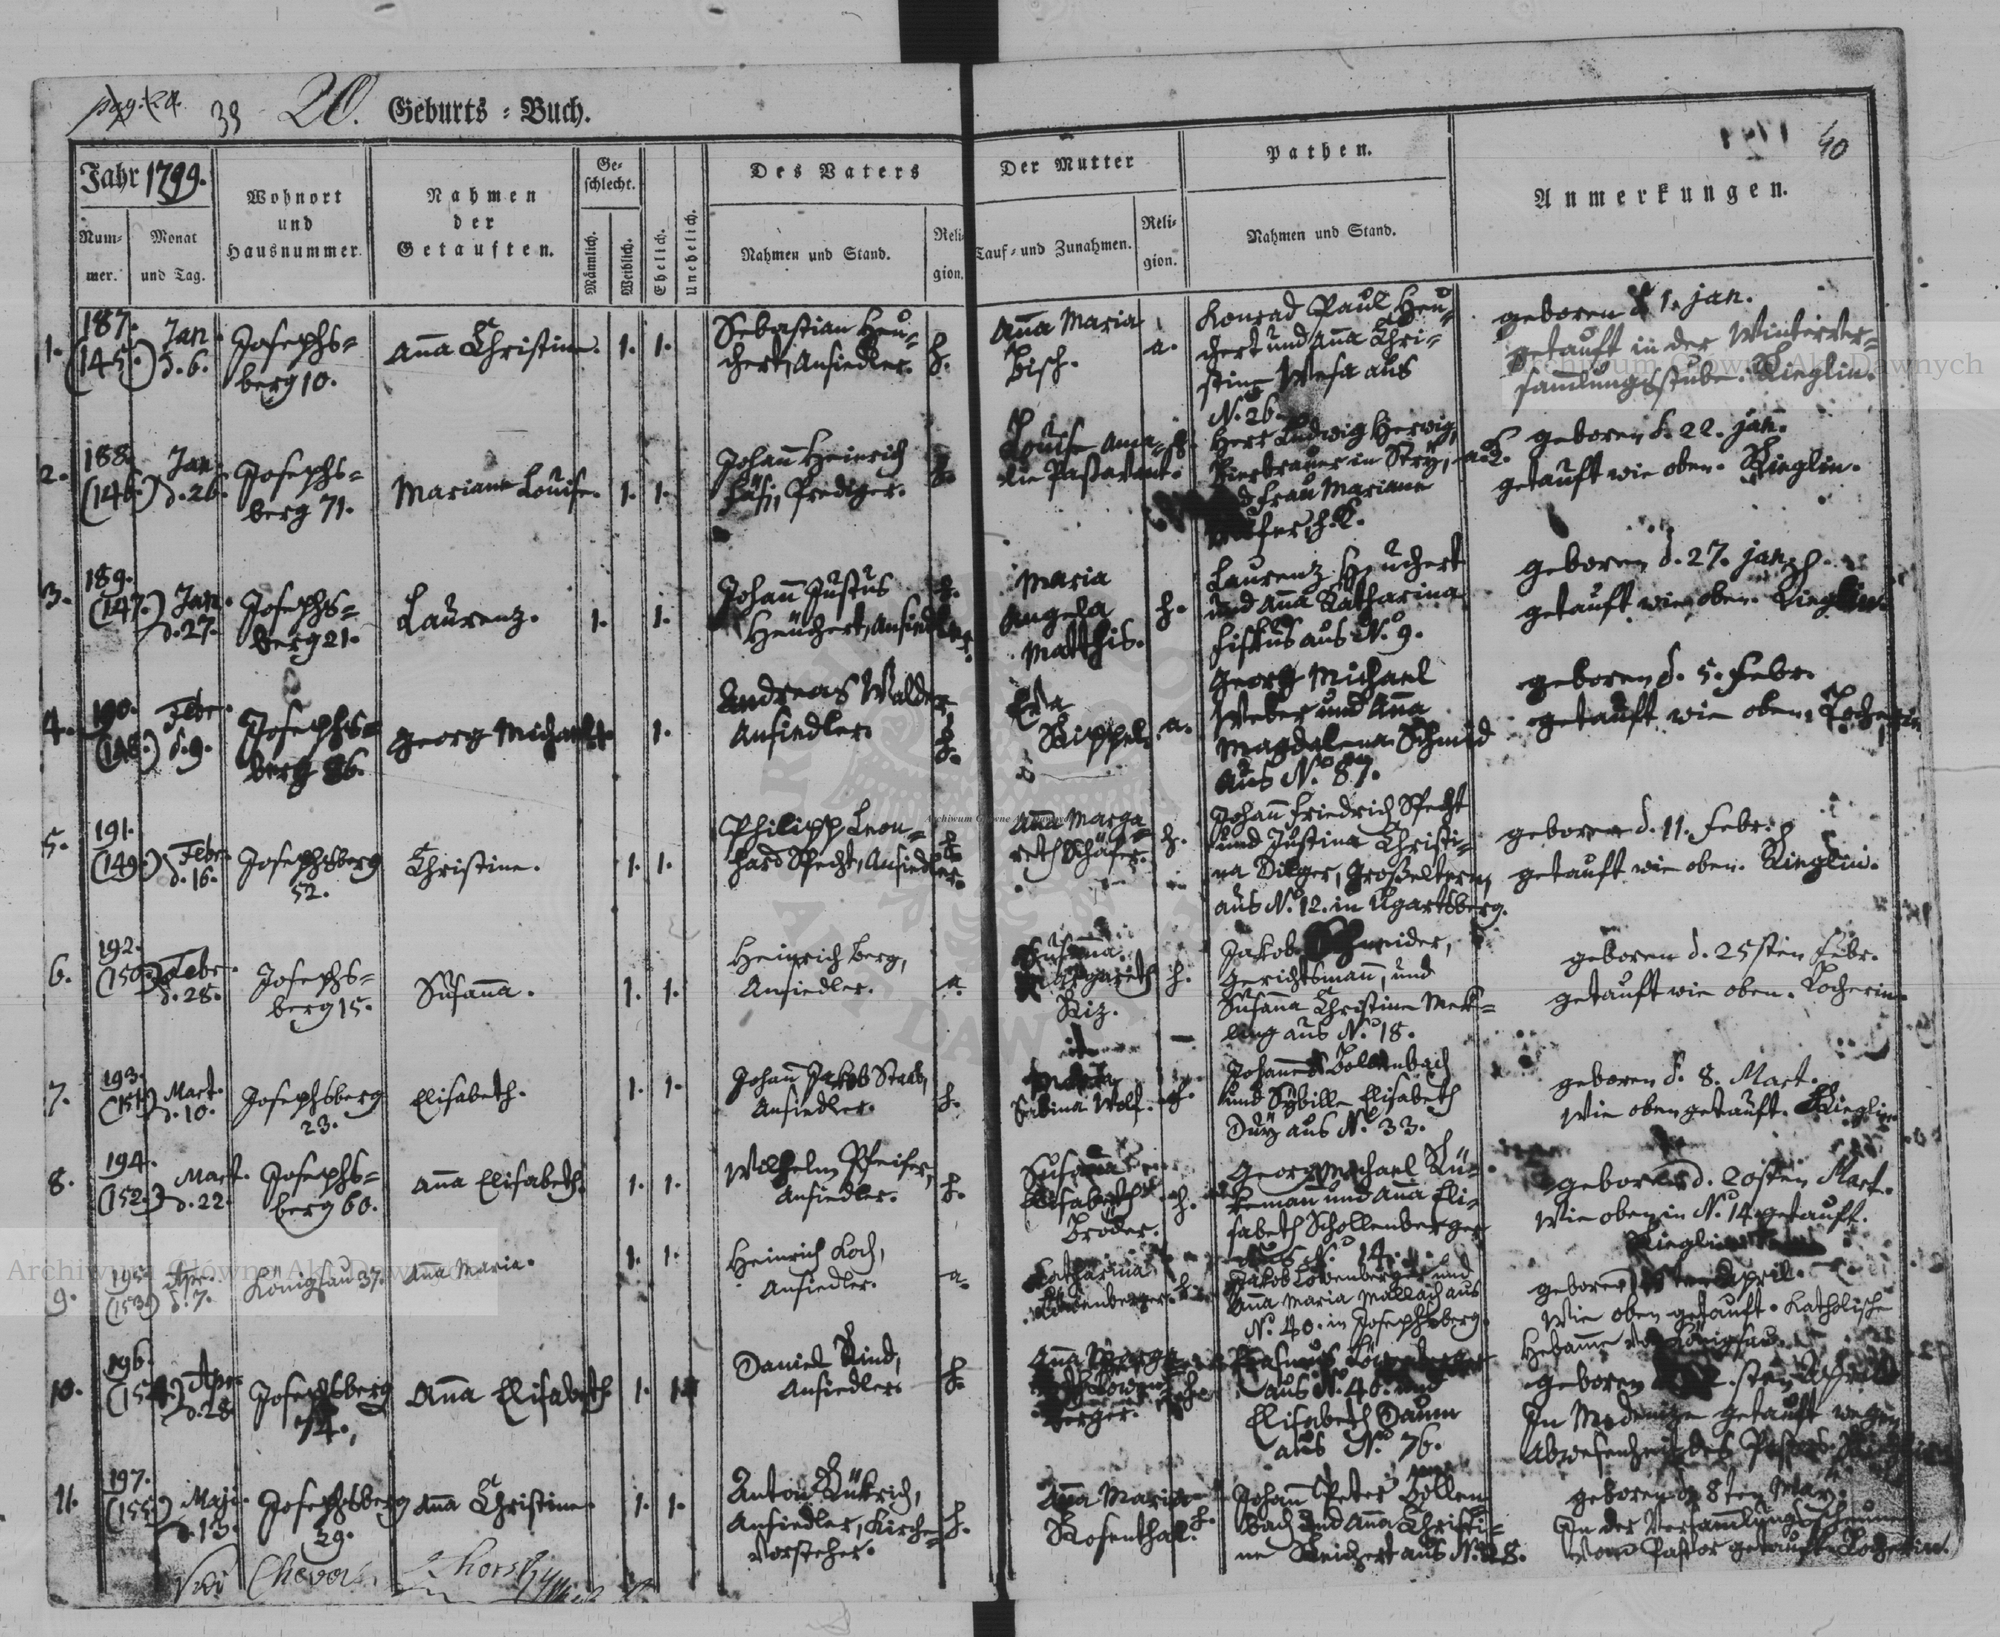 pag. 24.
39
20. Geburts = Buch.
40
Jahr 1799.
Num=
mer.
Monat
und Tag.
Wohnort
und
Hausnummer.
Nahmen
der
Getauften.
Ge=
schlecht.
Männlich.
Weiblich.
Ehelich.
Unehelich.
Des Vaters
Nahmen und Stand.
Reli=
gion.
Der Mutter
Tauf= und Zunahmen.
Reli=
gion.
Pathen.
Nahmen und Stand.
Anmerkungen.
1.
187.
(145.)
Jan
d. 6.
Josephs=
berg 10.
Anna Christine.
1.
1.
Sebastian Heu=
chert, Ansiedler.
h.
Anna Maria
Bisch.
a.
Konrad Paul Heu=
chert und Anna Chri=
stine Wesa aus
N. 26.
geboren d. 1. Jan.
getauft in der Winterver=
sammlungsstube. Kieglin.
2.
188.
(146.)
Jan
d. 26.
Josephs=
berg 71.
Mariane Louise.
1.
1.
Johann Heinrich
Präsi, Prediger.
h.
Louise Ama=
lie Passavant.
Herr Ludwig Herwig,
Bierbrauer in Stry, a. C.
Frau Mariane
h. C.
geboren d. 22. Jan.
getauft wie oben. Kieglin.
3.
189.
(147.)
Jan.
d. 27.
Josephs=
berg 21.
Laurenz.
1.
1.
Johann Justus
Heuchert, Ansiedler.
h.
Maria
Angela
Matthis.
h.
Laurenz Heuchert
und Anna Katharina
Fiskus aus N. 9.
geboren d. 27. Jan.
getauft wie oben. Kieglin.
4.
190.
(148.)
Febr.
d. 9.
Josephs=
berg 86.
Georg Michael.
1.
1.
Andreas Walder
Ansiedler.
h.
Eva
Rippel.
a.
Georg Michael
Weber und Anna
Magdalena Schmid
aus N. 87.
geboren d. 5. Febr.
getauft wie oben. Kocherin
5.
191.
(149.)
Febr.
d. 16.
Josephsberg
52.
Christine.
1.
1.
Philipp Leon=
hard Specht, Ansiedler.
h.
Anna Marga=
reth Schäfer.
h.
Johann Friedrich Specht
und Justina Christi=
na Dilger, Großeltern,
aus N. 12. in Ugartsberg.
geboren d. 11. Febr.
getauft wie oben. Kieglin.
6.
192.
(150.)
Febr.
d. 28.
Josephs=
berg 15.
Susanna.
1.
1.
Heinrich Berg,
Ansiedler.
a.
Susanna
Margareth
Riz.
h.
Jakob Schneider,
Gerichtsmann, und
Susanna Christine Mek=
lang aus N. 18.
geboren d. 25sten Febr.
getauft wie oben. Kocherin.
7.
193.
(151.)
Mart.
d. 10.
Josephsberg
23.
Elisabeth.
1.
1.
Johann Jakob Staub,
Ansiedler.
h.
Sabina Wolf.
h.
Johannes Bollenbach
und Sybille Elisabeth
Duy aus N. 33.
geboren d. 8. Mart.
Wie oben getauft. Kieglin
8.
194.
(152.)
Mart.
d. 22.
Josephs=
berg 60.
Anna Elisabeth.
1.
1.
Wilhelm Pfeifer,
Ansiedler.
h.
Susanna
Elisabeth
Bröder.
h.
Georg Michael Rü=
keman und Anna Eli=
sabeth Schollenberger
aus N. 14.
geboren d. 20sten Mart.
Wie oben in N. 14. getauft.
Kieglin
9.
195.
(153.)
Apr.
d. 7.
Königsau 37.
Anna Maria.
1.
1.
Heinrich Koch,
Ansiedler.
a.
Katharina
Löwenberger.
h.
Jakob Löwenberger und
Anna Maria Mallach aus
N. 40. in Josephsberg.
geboren April.
Wie oben getauft. Katholische
Hebamme von Königsau.
10.
196.
(154.)
Apr.
d. 28
Josephsberg
74.
Anna Elisabeth
1.
1.
Daniel Rind,
Ansiedler.
h.
Anna Marga=
reth Löwen=
berger.
h.
Erasmus Löwenberger
aus N. 40. und
Elisabeth Daum
aus N. 76.
geboren sten April
In Medenize getauft wegen
Abwesenheit des Pastors.
11.
197.
(155.)
Maji.
d. 13.
Josephsberg
29.
Anna Christine.
1.
1.
Anton Rükrich,
Ansiedler, Kirche=
Vorsteher.
h.
Anna Maria
Rosenthal.
h.
Johann Peter Bollen
bach und Anna Christi=
ne Reichert aus N. 28.
geboren d. 8ten May.
In der Versammlungsscheune
vom Pastor getauft. Kocherin.
Archiwum Główne Akt Dawnych
Archiwum Główne Akt Dawnych
Archiwum Główne Akt Dawnych